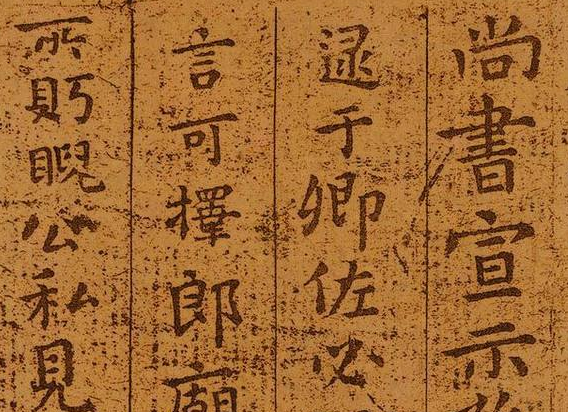 尚書宣示
逯于卿佐必
言可擇郎廟
所䝱睨公私見